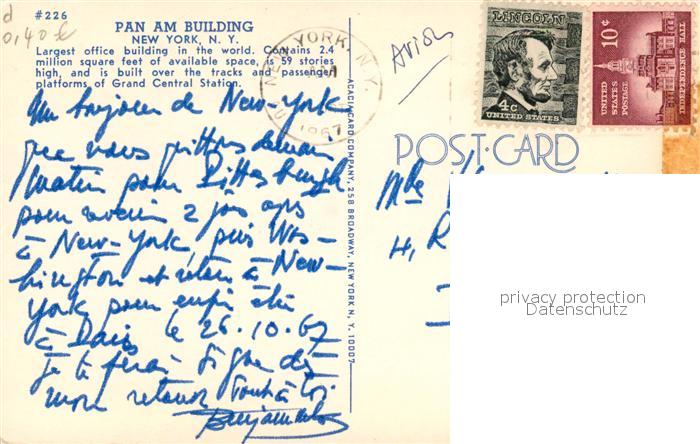 d
0,40 €
#226
PAN AM BUILDING
NEW YORK, N. Y.
Largest office building in the world. Contains 2.4
million square feet of available space, is 59 stories
high, and is built over the tracks and passenger
platforms of Grand Central Station.
Un bonjour de New-York
que nous quittons demain
matin pour Pittsburgh
pour revenir 2 jours après
à New-York, puis Was-
hington et retour à New-
York pour enfin être
à Paris le 26.10.67
Je te ferai signe dès
mon retour Tout à toi
NEW YORK, N.Y.
1967
Avion
LINCOLN
4c
UNITED STATES
10¢
UNITED STATES POSTAGE
INDEPENDENCE HALL
ACACIA CARD COMPANY, 258 BROADWAY, NEW YORK N. Y. 10007
POST CARD
Mme
4, R
privacy protection
Datenschutz